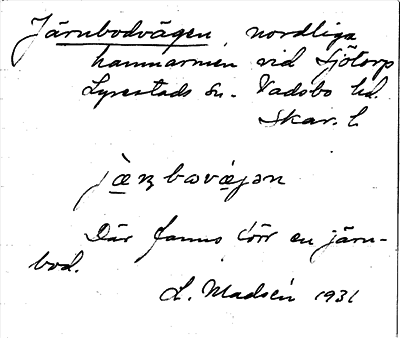 Järnbodvägen, nordliga
hamnarmen vid Sjötorp
Lyrestads sn. Vadsbo hd.
Skar. l.
jæ̀ɳbωvǽjən
Där fanns förr en järn-
bod.
L. Madsén 1931